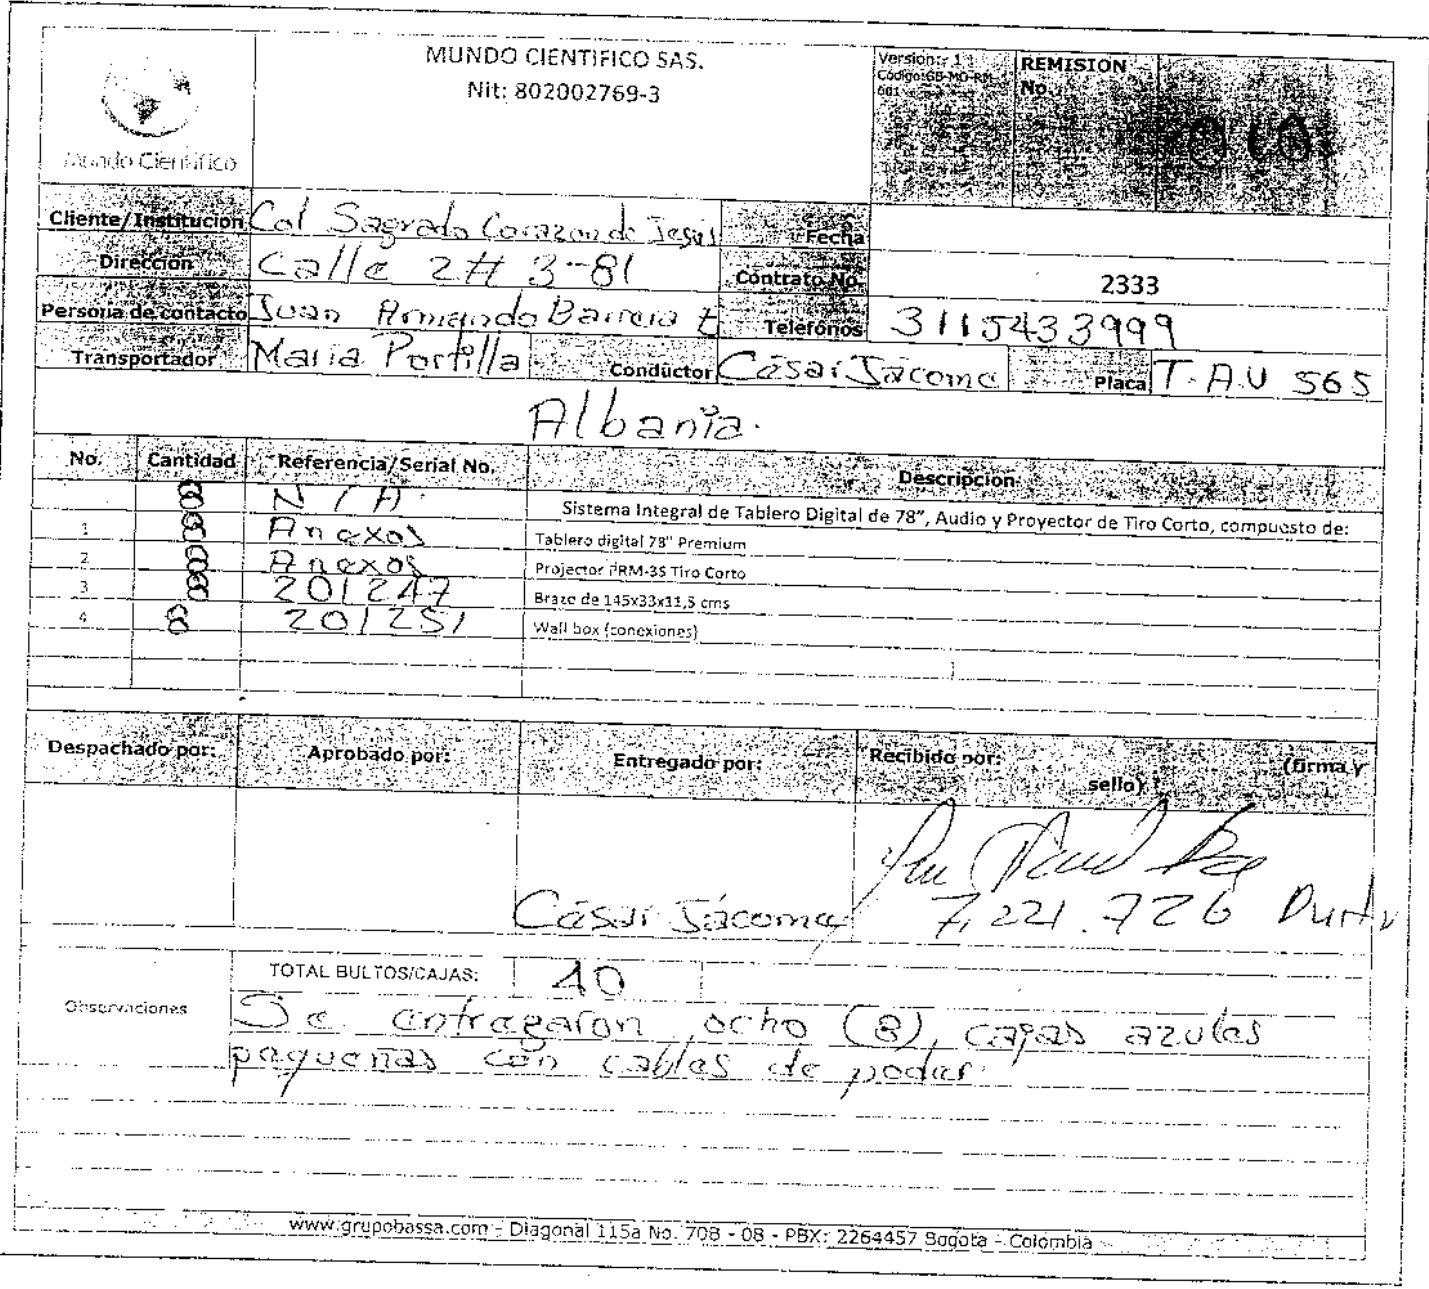 MUNDO CIENTIFICO SAS.
Nit: 802002769-3
Version: 1
Código:GB-MO-RM-
001
REMISION
No.
Mundo Científico
Cliente/Institución Col Sagrado Corazon de Jesús Fecha
Dirección Calle 2# 3-81 Contrato No. 2333
Persona de contacto Juan Armando Barrera t Telefónos 3115433999
Transportador Maria Portilla Conductor César Jácome Placa T.A.U 565
Albania.
No. Cantidad Referencia/Serial No. Descripción
8 N/A Sistema Integral de Tablero Digital de 78", Audio y Proyector de Tiro Corto, compuesto de:
1 8 Anexos Tablero digital 78" Premium
2 8 Anexos Projector PRM-35 Tiro Corto
3 8 201247 Brazo de 145x33x11,5 cms
4 8 201251 Wall box (conexiones)
Despachado por: Aprobado por: Entregado por: Recibido por: (firma y
sello)
César Jácome 7,221.726
TOTAL BULTOS/CAJAS: 40
Observaciones Se entregaron ocho (8), cajas azules
pequeñas con cables de poder.
www.grupobassa.com - Diagonal 115a No. 70B - 08 - PBX: 2264457 Bogota - Colombia